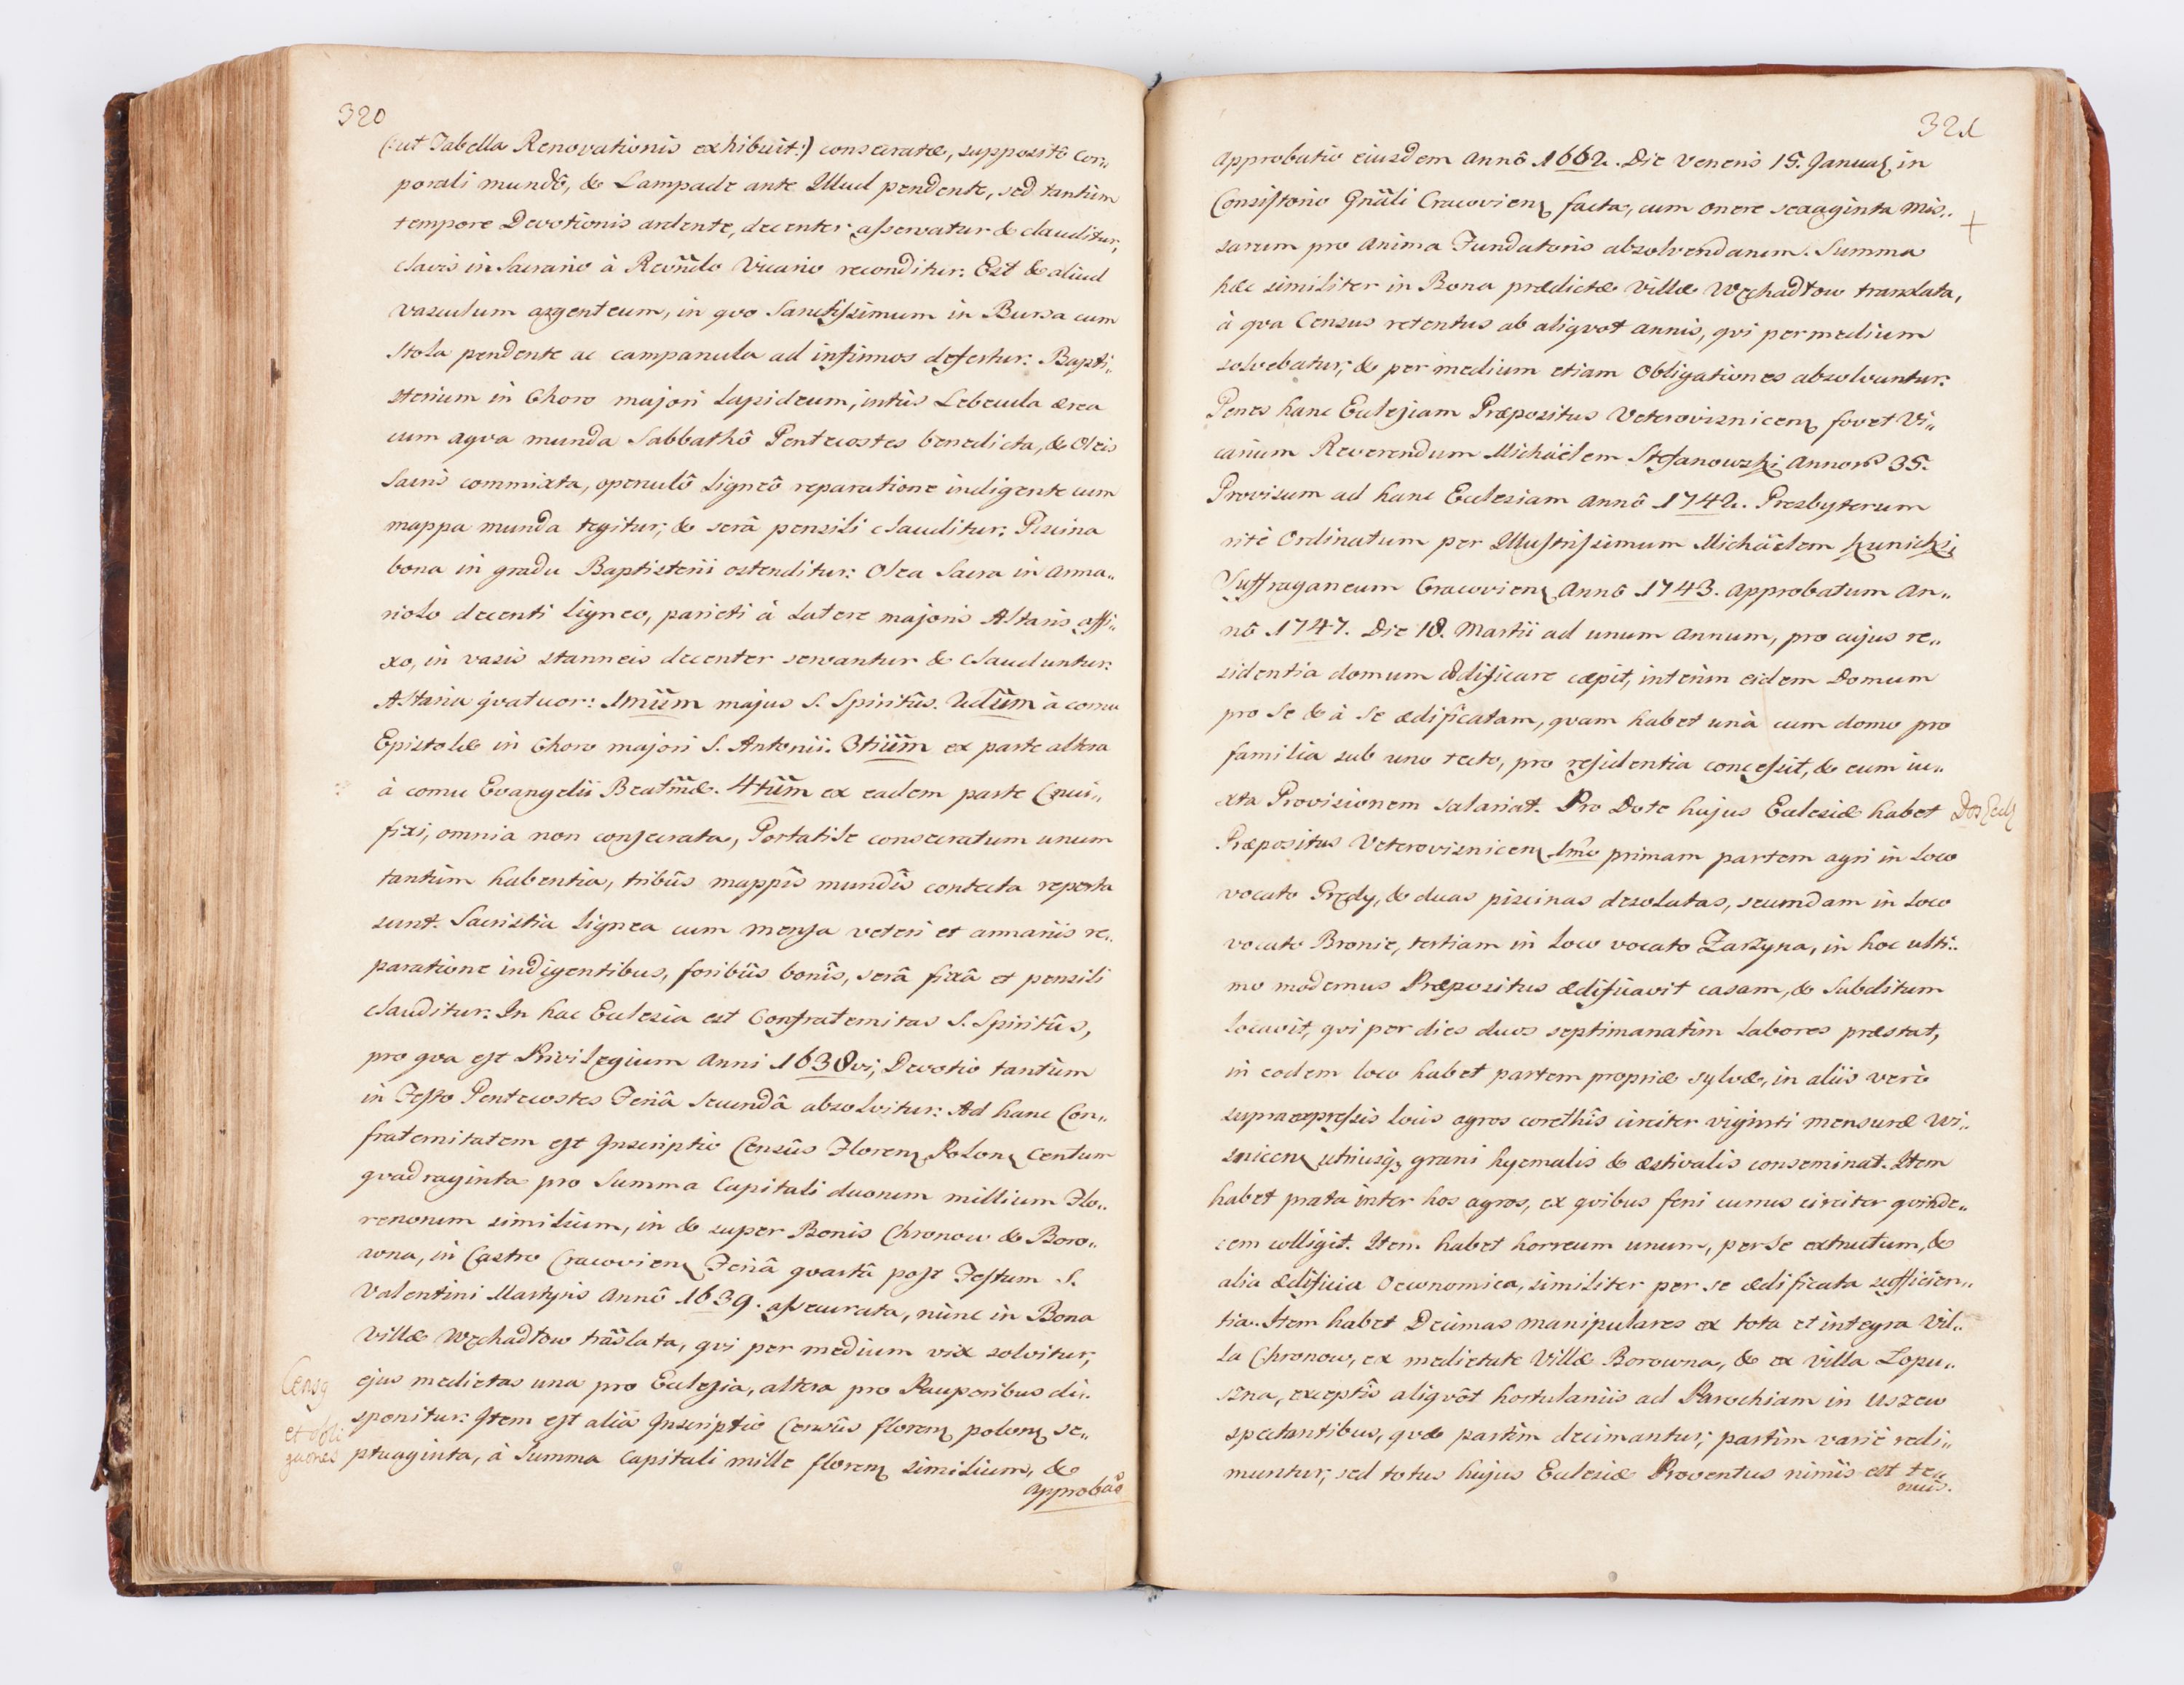 320
(:ut Tabella Renovationis exhibuit:) consecratæ, suppositô cor„
porali mundô, & Lampade ante Illud pendente, sed tantùm
tempore Devotionis ardente, decenter asservatur & clauditur,
clavis in Sacrario à Revndo Vicario reconditur: Est & aliud
vasculum argenteum, in qvo Sanctissimum in Bursa cum
Stola pendente ac campanula ad infirmos defertur: Bapti„
sterium in Choro majori Lapideum, intùs Lebecula ærea
cum aqva munda Sabbathô Pentecostes benedicta, & Oleis
Sacris commixta, operculô Ligneô reparatione indigente cum
mappa munda tegitur; & serâ pensili clauditur: Piscina
bona in gradu Baptisterii ostenditur: Olea Sacra in arma„
riolo decenti Ligneo, parieti à Latere majoris Altaris affi„
xo, in vasis stanneis decenter servantur & clauduntur:
Altaria qvatuor: 1mum majus S. Spiritûs. 2dum à cornu
Epistolæ in Choro majori S. Antonii. 3tium ex parte altera
à cornu Evangelii Beatmæ. 4tum ex eadem parte Cruci„
fixi, omnia non consecrata, Portatile consecratum unum
tantùm habentia, tribûs mappîs mundîs contecta reperta
sunt. Sacristia Lignea cum mensa veteri et armariis re„
paratione indigentibus, foribûs bonîs, serâ fixâ et pensili
clauditur: In hac Ecclesia est Confraternitas S. Spiritûs,
pro qva est Privilegium Anni 1638vi, Devotio tantùm
in Festo Pentecostes Feriâ Secundâ absolvitur: Ad hanc Con„
fraternitatem est Inscriptio Censûs Floren Polon Centum
qvadraginta pro Summa Capitali duorum millium Flo„
renorum similium, in & super Bonis Chronow & Boro„
wna, in Castro Cracovien Feriâ qvartâ post Festum S.
Valentini Martyris Annô 1639. assecurata, nùnc in Bona
Villæ Wechadłow trãslata, qvi per medium vix solvitur,
ejus medietas una pro Ecclesia, altera pro Pauperibus di„
sponitur: Item est alia Inscriptio Censûs floren polon se„
ptuaginta, à Summa Capitali mille floren similium, &
approbão
Censq
et obli
gaones
321
approbatio eiusdem Annô 1662. Die Veneris 15. Januar in
Consistorio Gnãli Cracovien facta, cum onere sexaginta Mis„
sarum pro Anima Fundatoris absolvendarum. Summa
hæc similiter in Bona prædictæ Villæ Wechadłow translata,
à qva Census retentus ab aliqvot annis, qvi per medium
solvebatur, & per medium etiam Obligationes absolvuntur:
Penes hanc Ecclesiam Præpositus Veterovisnicen fovet Vi„
carium Reverendum Michäelem Stefanowski Annorum 35.
Provisum ad hanc Ecclesiam Annô 1742. Presbyterum
ritè Ordinatum per Illustrissimum Michäelem Kunicki
Suffraganeum Cracovien Annô 1743. Approbatum An„
nô 1747. Die 18. Martii ad unum Annum, pro cujus re„
sidentia domum ædificare cæpit, interim eidem Domum
pro Se & à Se ædificatam, qvam habet unà cum domo pro
familia sub uno tecto, pro residentia concessit, & eum iu„
xta Provisionem salariat. Pro Dote hujus Ecclesiæ habet
Præpositus Veterovisnicen 1mo primam partem agri in Loco
vocato Grędy, & duas piscinas desolatas, secundam in Loco
vocato Bronie, tertiam in Loco vocato Zarzyna, in hoc ulti„
mo modernus Præpositus ædificavit casam, & Subditum
Locavit, qvi per dies duos septimanatìm Labores præstat,
in eodem loco habet partem propriæ sylvæ, in aliis verò
supraexpressis locis agros corethîs circiter viginti mensuræ Wi„
snicen utriusq, grani hyemalis & æstivalis conseminat. Item
habet prata inter hos agros, ex qvibus feni currus circiter qvinde„
cem colligit. Item habet horreum unum, per Se extructum, &
alia ædificia Oeconomica, similiter per se ædificata sufficien„
tia. Item habet Decimas manipulares ex tota et integra Vil„
la Chronow, ex medietate Villæ Borowna, & ex villa Łopu„
szna, exceptîs aliqvôt hortulaniis ad Parochiam in Uszew
spectantibus, qvæ partìm decimantur, partìm variè redi„
muntur, sed totus hujus Ecclesiæ Proventus nimìs est te„
nuis.
Dos Eccl